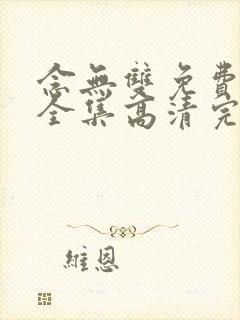 念無雙免費
全集高清完
維恩